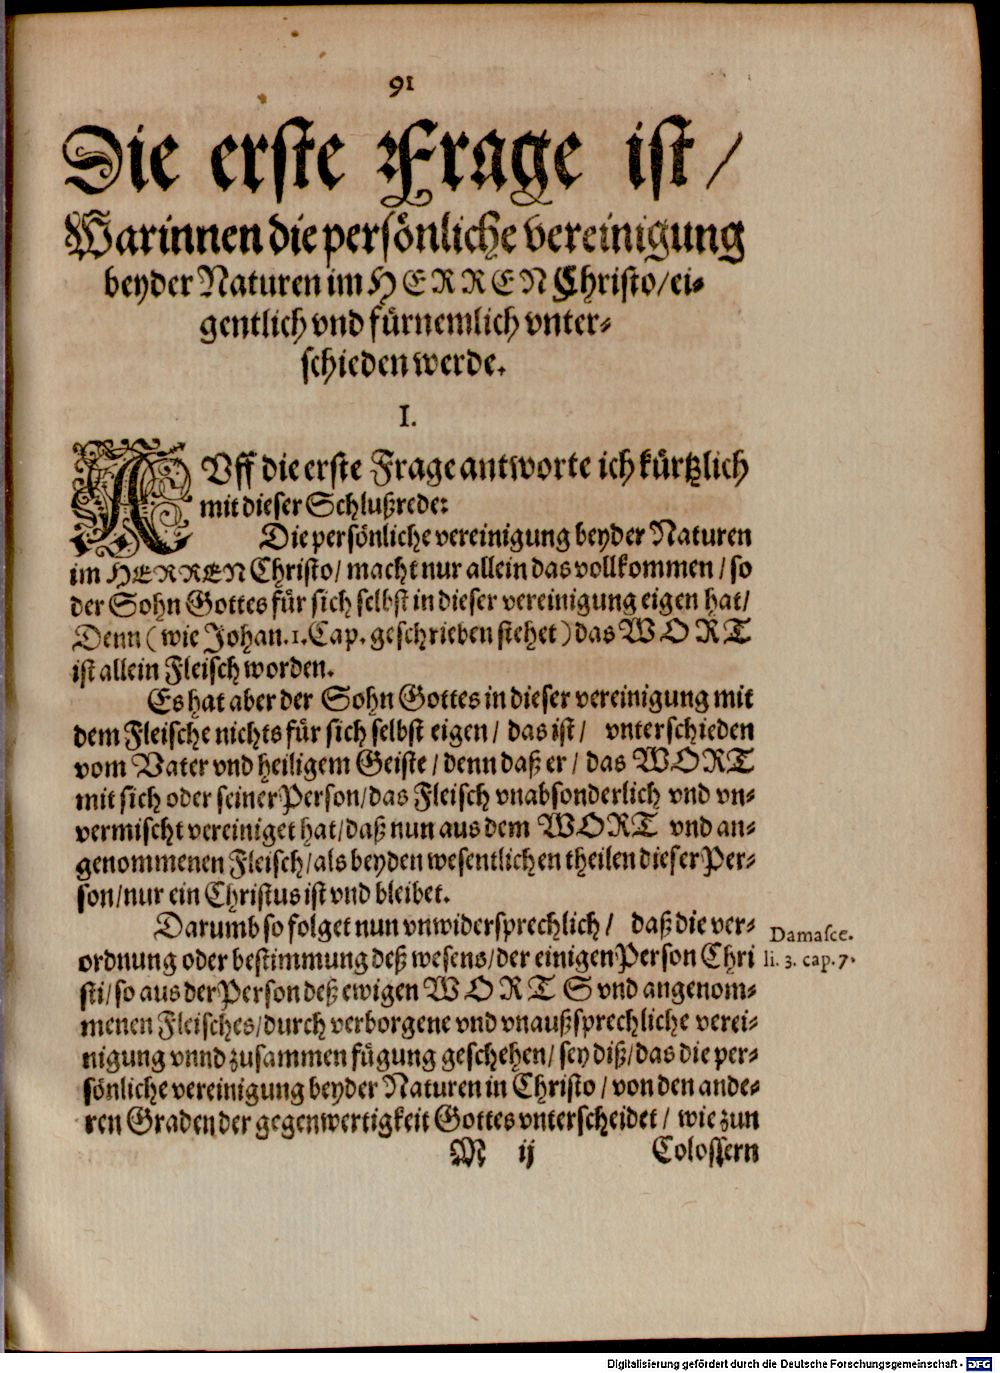 91
Die erste Frage ist /
Warinnen die persönliche vereinigung
beyder Naturen im HERREN Christo / ei⸗
gentlich vnd fürnemlich vnter⸗
schieden werde.
I.
AVff die erste Frage antworte ich kürtzlich
mit dieser Schlußrede:
Die persönliche vereinigung beyder Naturen
im HERREN Christo / macht nur allein das vollkommen / so
der Sohn Gottes für sich selbst in dieser vereinigung eigen hat /
Denn ( wie Johan. 1. Cap. geschrieben stehet ) das WORT
ist allein Fleisch worden.
Es hat aber der Sohn Gottes in dieser vereinigung mit
dem Fleische nichts für sich selbst eigen / das ist / vnterschieden
vom Vater vnd heiligem Geiste / denn daß er / das WORT
mit sich oder seiner Person / das Fleisch vnabsonderlich vnd vn⸗
vermischt vereiniget hat / daß nun aus dem WORT vnd an⸗
genommenen Fleisch / als beyden wesentlichen theilen dieser Per⸗
son / nur ein Christus ist vnd bleibet.
Darumb so folget nun vnwidersprechlich / daß die ver⸗
ordnung oder bestimmung deß wesens / der einigen Person Chri
sti / so aus der Person deß ewigen WORTS vnd angenom⸗
menen Fleisches / durch verborgene vnd vnaußsprechliche verei⸗
nigung vnnd zusammen fügung geschehen / sey diß / das die per⸗
sönliche vereinigung beyder Naturen in Christo / von den ande⸗
ren Graden der gegenwertigkeit Gottes vnterscheidet / wie zun
M ij Colossern
Damasce.
li. 3. cap. 7.
Digitalisierung gefördert durch die Deutsche Forschungsgemeinschaft - DFG